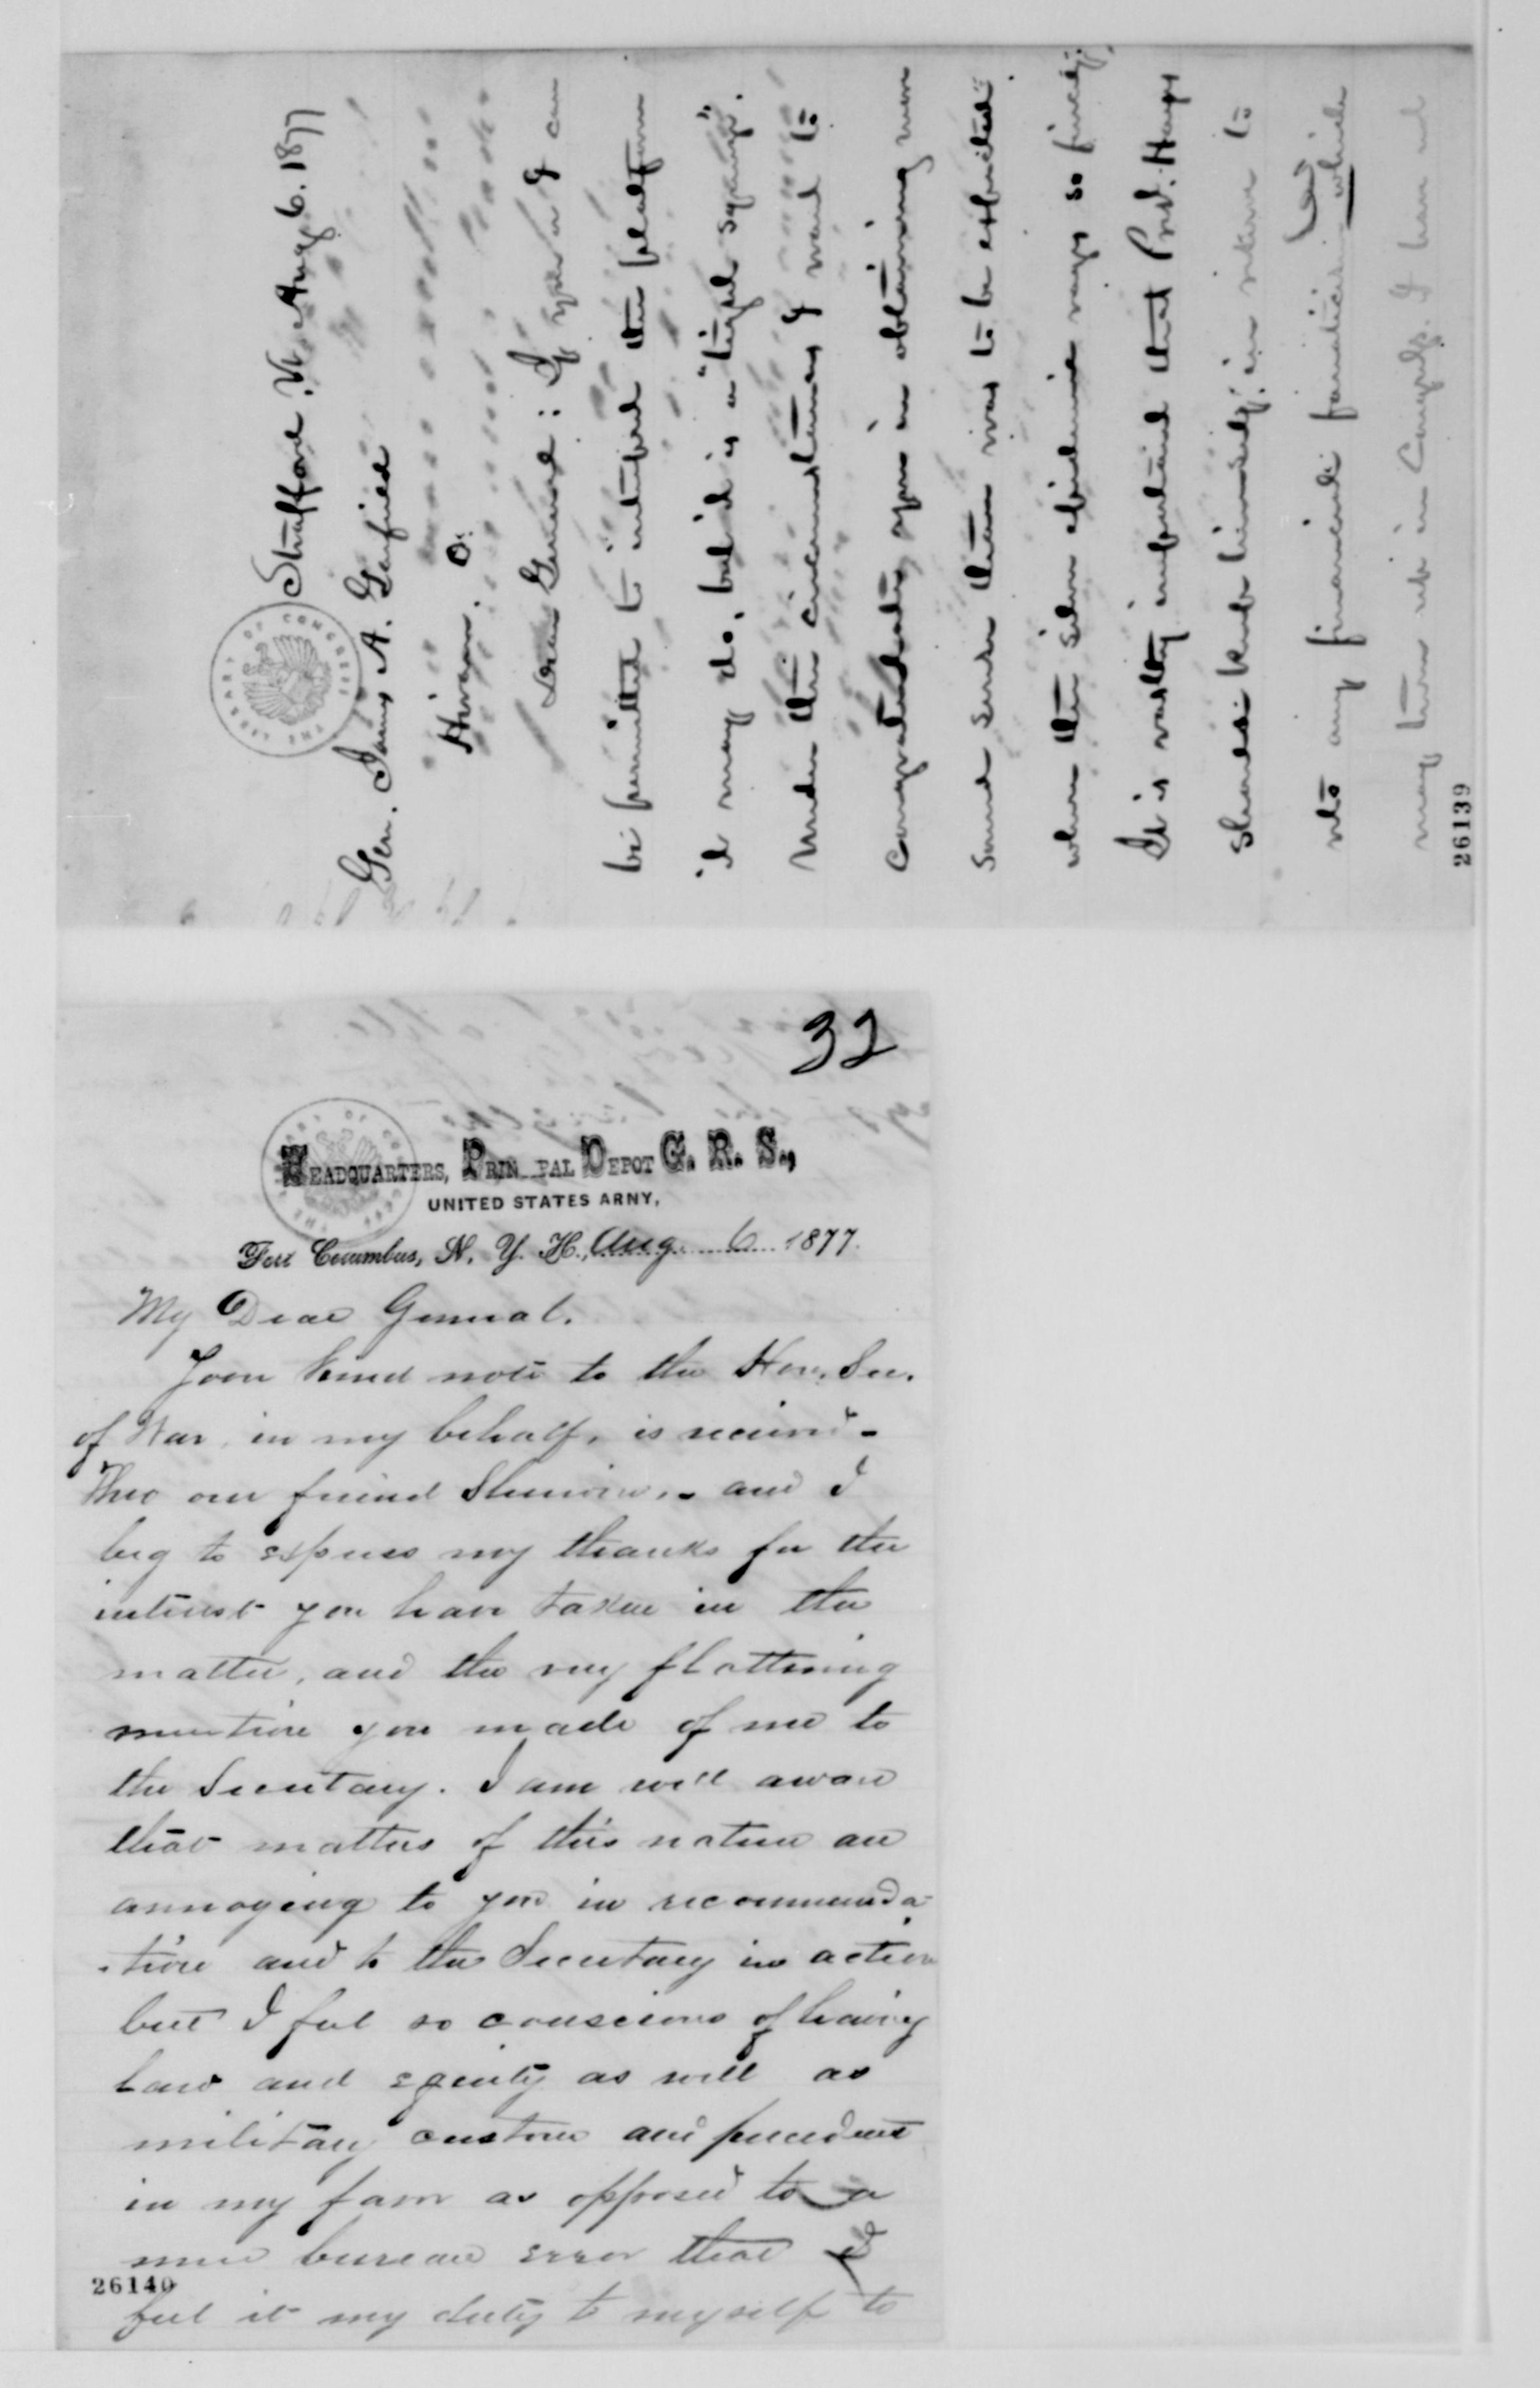 Strafford. Vt. Aug 6. 1877
Gen. James A. Garfield
Hiram. O.
Dear General: If you or I can
be permitted to interpret the platform
it may do, but it is a "tight squeeze".
Under the circumstances I want to
congratulate you in obtaining more
sound sense than was to be expected
where the silver epidemic rages so fiercely,
It is vastly important that Prest. Hayes
should keep himself in
into any financial fanaticism while
may turn up in Congress. I have not
26139
32
THE LIBRARY OF CONGRESS
HEADQUARTERS, PRIN PAL DEPOT G. R. S.,
UNITED STATES ARNY,
Fort Columbus, N. Y. H., Aug. 6 1877.
My Dear General.
Your kind note to the Hon. Sec.
of War, in my behalf, is received -
thro our friend - and I
beg to express my thanks for the
interest you have taken in the
matter, and the very flattering
mention you made of me to
the Secretary. I am well aware
that matters of this nature are
annoying to you in recommenda-
-tion and to the Secretary in action
but I feel so conscious of having
law and equity as well as
military custom and precedent
in my favor as opposed to a
mere bureau error that I
26140
feel it my duty to myself to